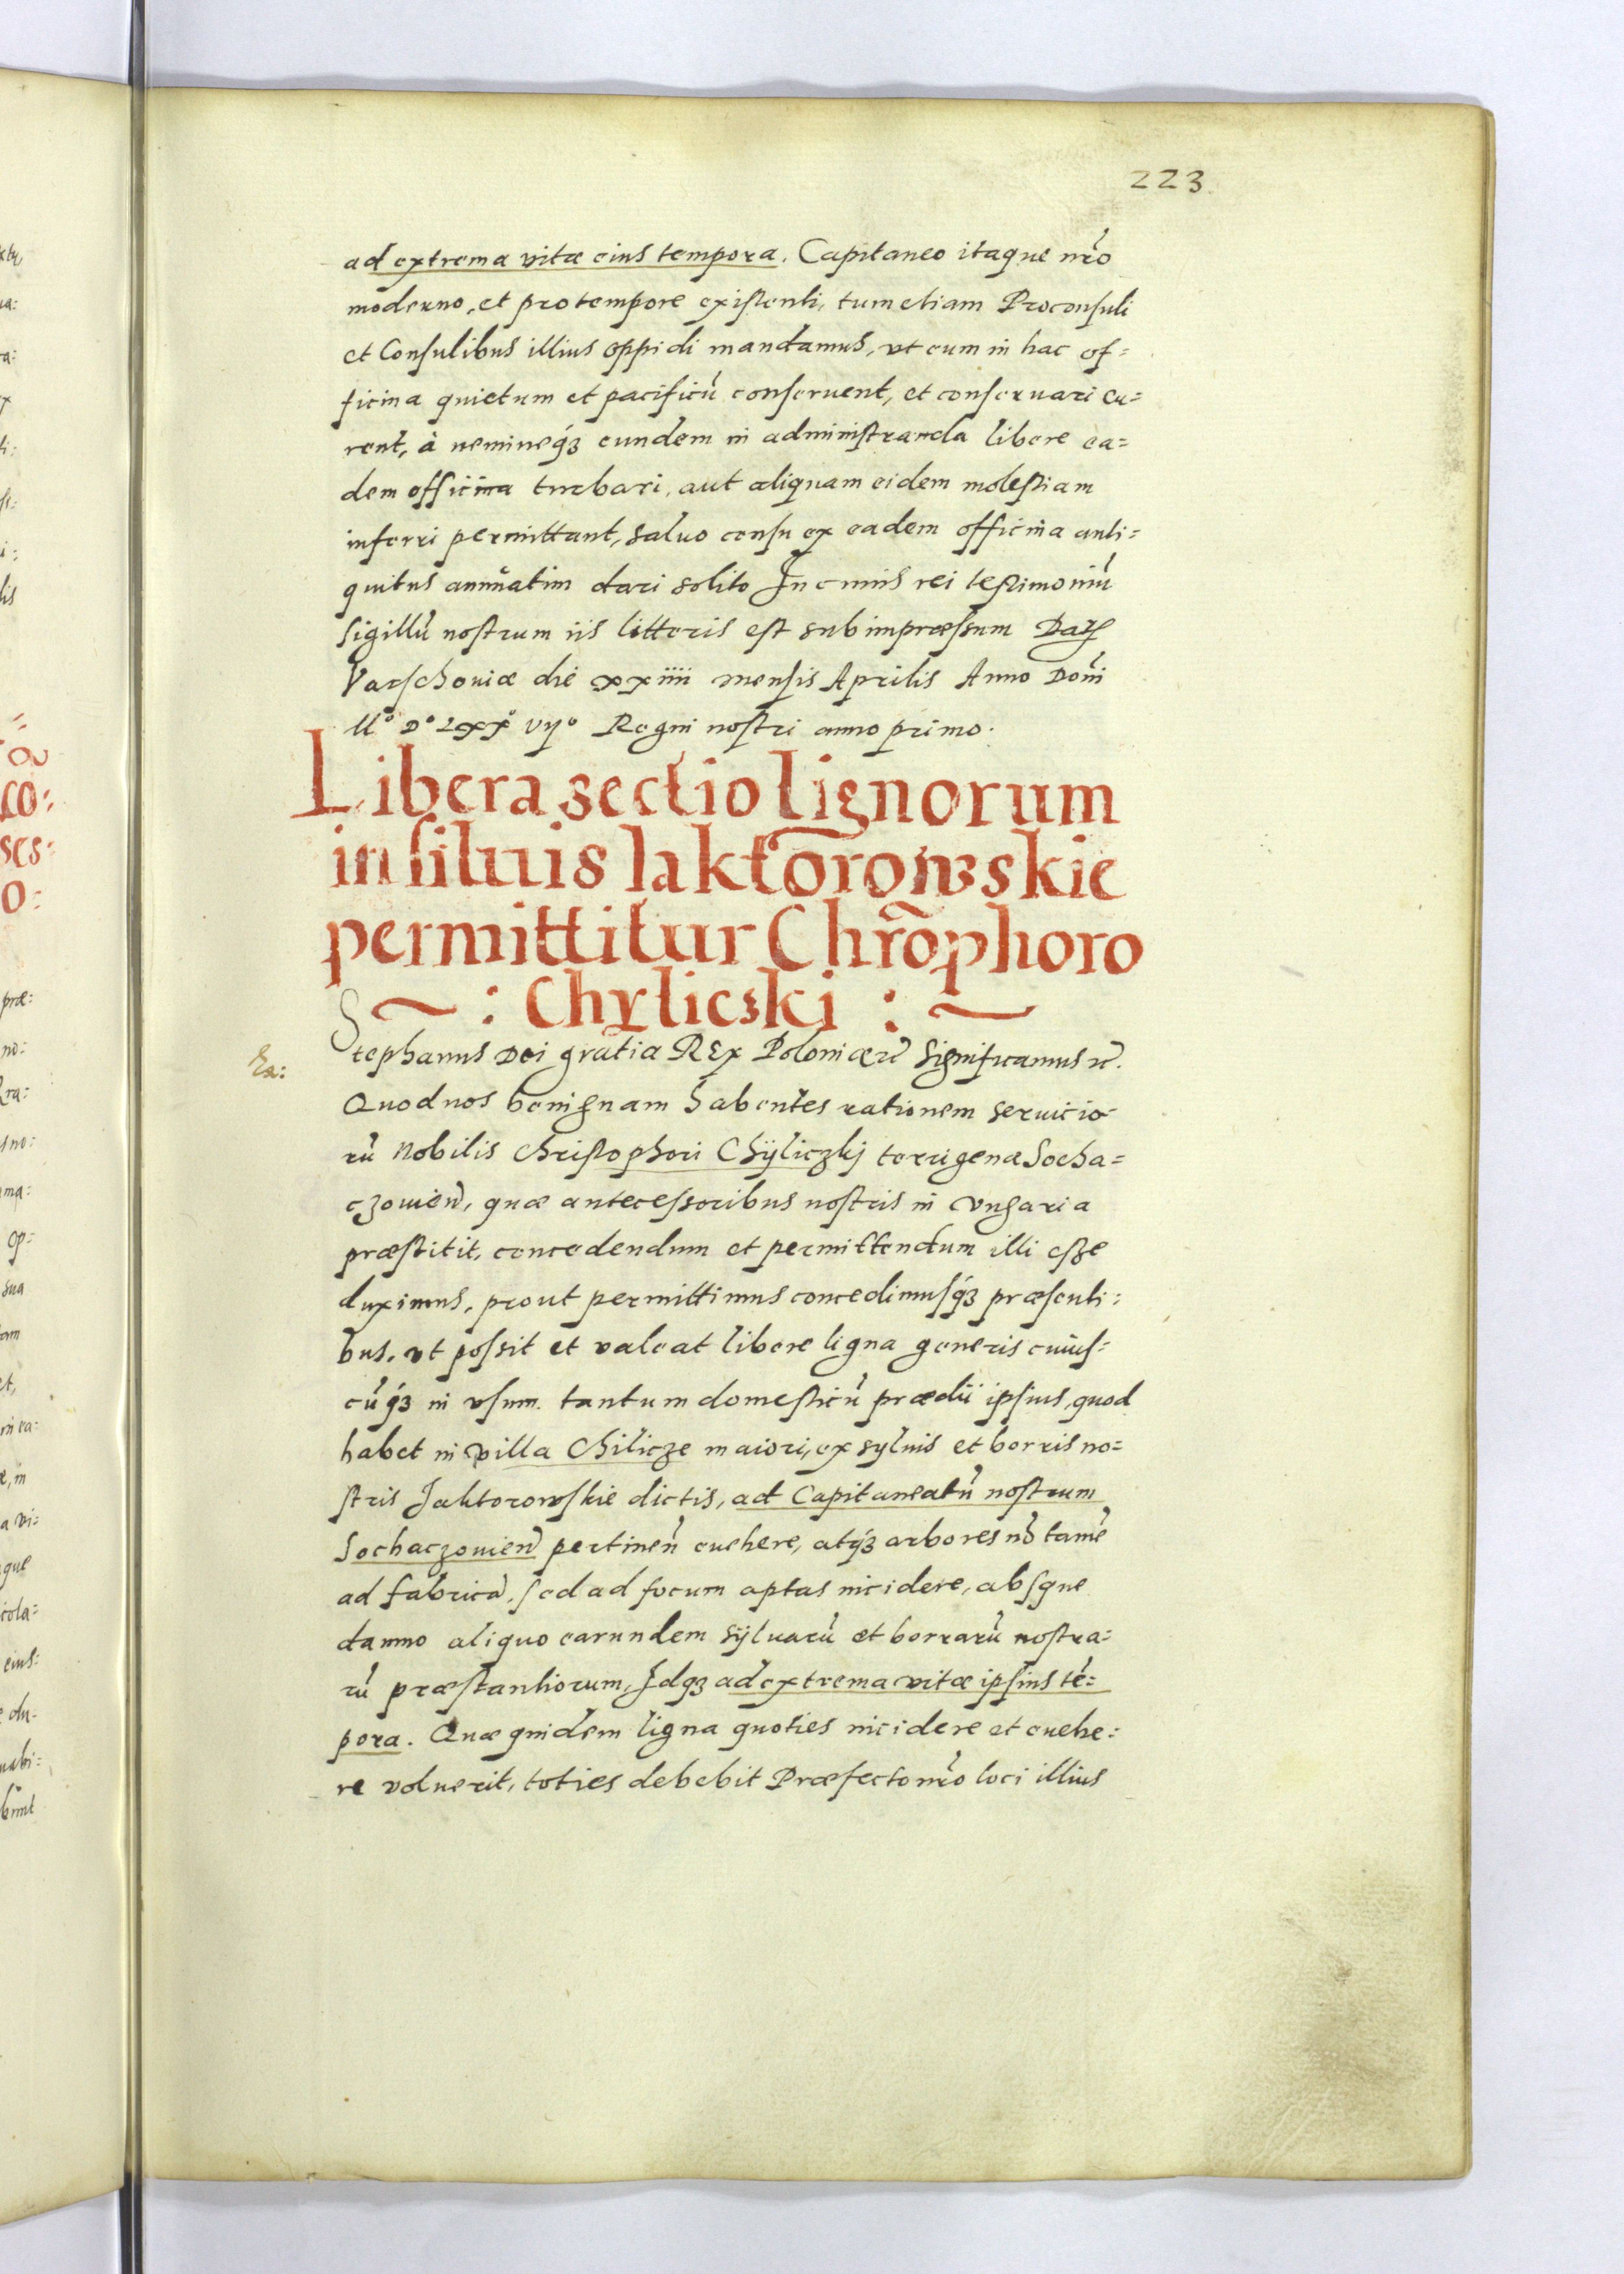 223
ad extrema vitæ eius tempora. Capitaneo itaque nr̃o
moderno, et pro tempore existenti, tum etiam Proconsuli
et Consulibus illius oppidi mandamus, vt eum in hac of=
ficina quietum et pacificũ conseruent, et conseruari cu=
rent, à nemineq́ȝ eundem in administranda libere ea=
dem officina turbari, aut aliquam eidem molestiam
inferri permittant, saluo censu ex eadem officina anti=
quitus annuatim dari solito In cuius rei testimoniũ
Sigillũ nostrum iis litteris est subimpræssum Datȝ
Varschouiæ die xxiiii mensis Aprilis Anno Dom̃i
M° D° LXX° vij° Regni nostri anno primo.
Libera sectio lignorum
in siluis Iaktorowskie
permittitur Chr̃ophoro
: Chylicski :
Stephanus Dei gratia REx Poloniæ &c̃ Significamus &c̃.
Quod nos benignam habentes rationem seruicio-
rũ Nobilis Christophori Chÿliczkj terrigenæ Socha=
czouieñ, quæ antecessoribus nostris in Vngaria
præstitit, concedendum et permittendum illi esse
duximus, prout permittimus concedimusq́ȝ præsenti=
bus, vt possit et valeat libere ligna generis cuius=
cũq́ȝ in vsum tantum domesticũ prædii ipsius, quod
habet in villa Chilicze maiori, ex syluis et borris no=
stris Jaktorowskie dictis, ad Capitaneatũ nostrum
Sochaczouieñ pertineñ euehere, atq́ȝ arbores nõ tamẽ
ad fabricã, sed ad focum aptas incidere, absque
damno aliquo earundem Sÿluarũ et borrarũ nostra=
rũ præstantiorum, Idqȝ ad extrema vitæ ipsius tẽ=
pora. Quæ quidem ligna quoties incidere et euehe=
re voluerit, toties debebit Præfecto nr̃o loci illius